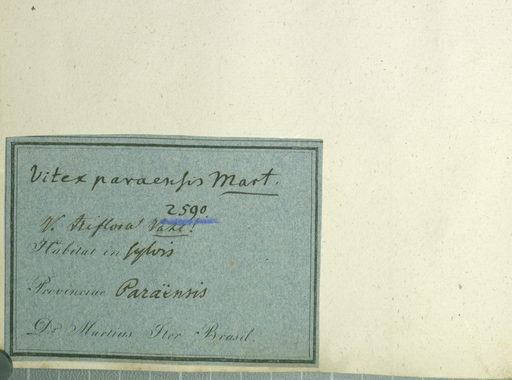 Vitex paraensis Mart.
2590
V. triflora Vahl!
Habitat in sylvis
Provinciae Paraënsis
Dr Martius Iter Brasil.